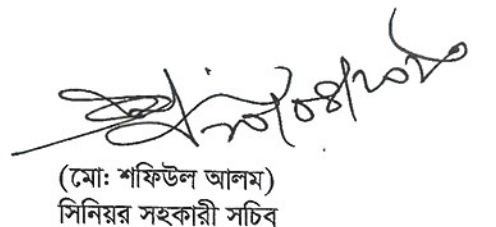 (মোঃ শফিউল আলম)
সিনিয়র সহকারী সচিব